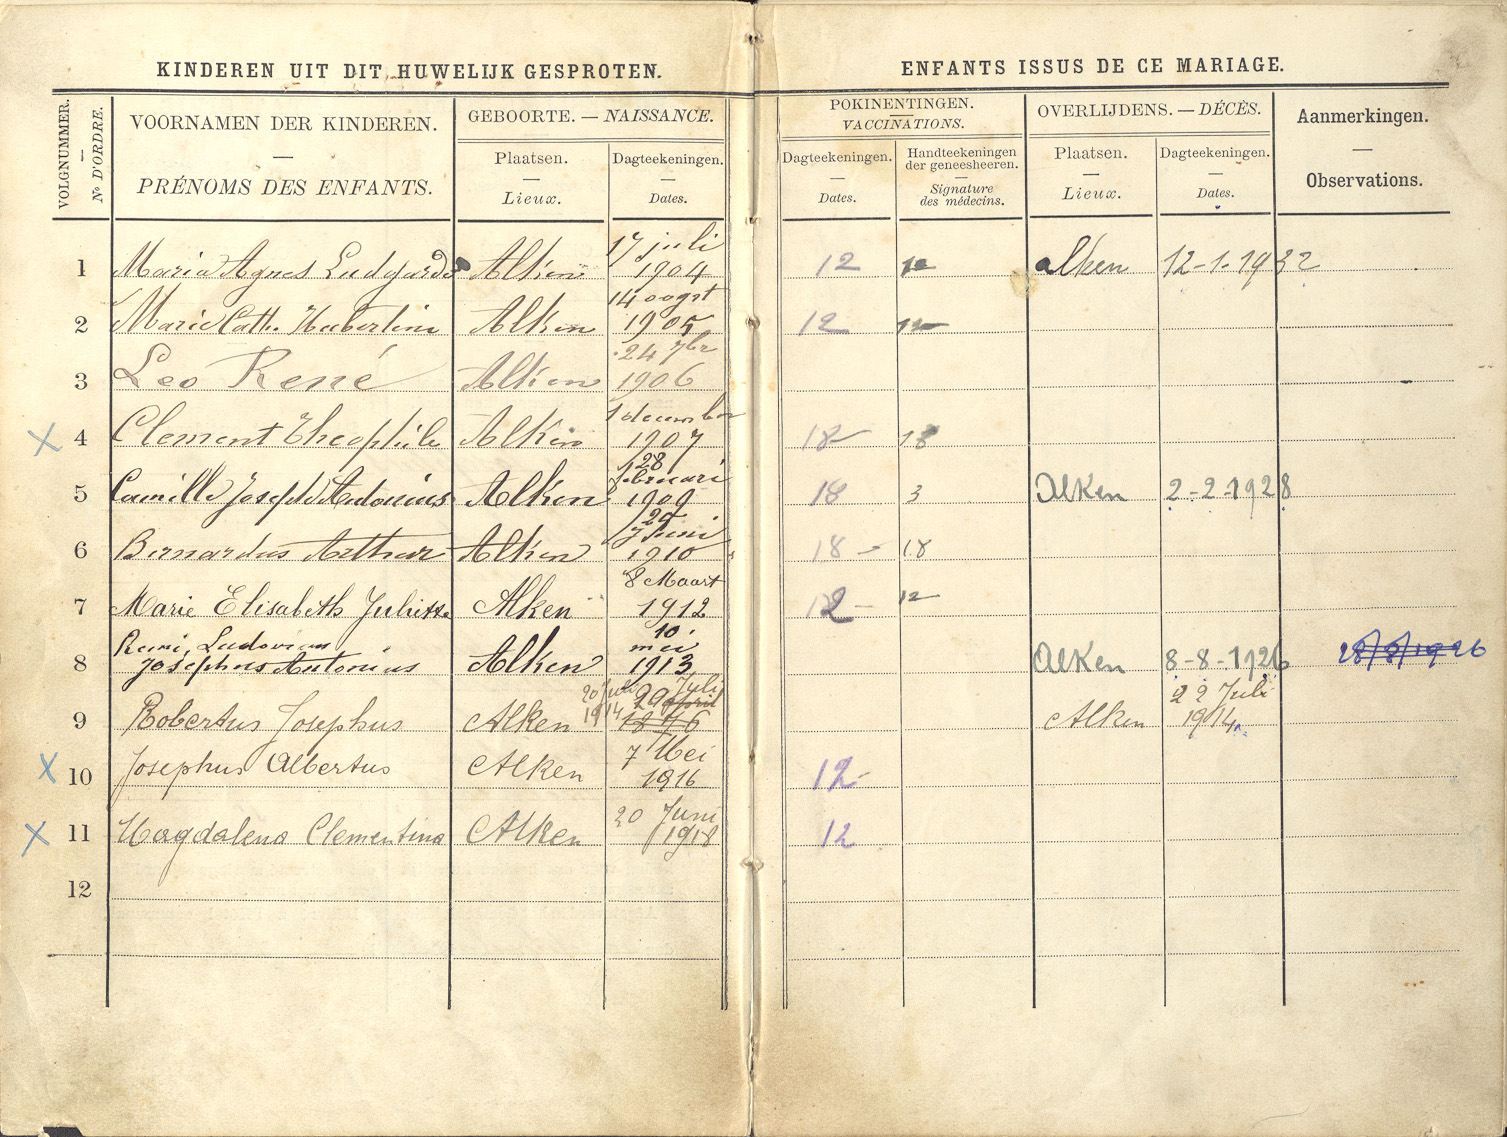 KINDEREN UIT DIT HUWELIJK GESPROTEN.
ENFANTS ISSUS DE CE MARIAGE.
VOLGNUMMER.
—
No D'ORDRE.
VOORNAMEN DER KINDEREN.
—
PRÉNOMS DES ENFANTS.
GEBOORTE. — NAISSANCE.
Plaatsen.
—
Lieux.
Dagteekeningen.
—
Dates.
POKINENTINGEN.
—
VACCINATIONS.
Dagteekeningen.
—
Dates.
Handteekeningen
der geneesheeren.
—
Signature
des médecins.
OVERLIJDENS. — DÉCÈS.
Plaatsen.
—
Lieux.
Dagteekeningen.
—
Dates.
Aanmerkingen.
—
Observations.
1 Maria Agnes Ludgarda Alken 17 juli 1904 12 12 alken 12-1-1932
2 Marie Cath. Hubertine Alken 14 oogst 1905 12 12
3 Leo René Alken 24 7br 1906
4 Clement Theophile Alken 1 december 1907 18 18
5 Camille Joseph Antonius Alken 28 februari 1909 18 3 Alken 2-2-1928
6 Bernardus Arthur Alken Juni 1910 18 - 18
7 Marie Elisabeth Juliette Alken 8 Maart 1912 12 - 12
8 Remi, Ludovicus
Josephus Antonius Alken 10 mei 1913 Alken 8-8-1926 28/8/1926
9 Robertus Josephus Alken 20 Juli 1914 29 Juli april 1876 Alken 22 Juli 1914
10 Josephus Albertus Alken 7 Mei 1916 12-
11 Magdalena Clementina Alken 20 Juni 1918 12
12